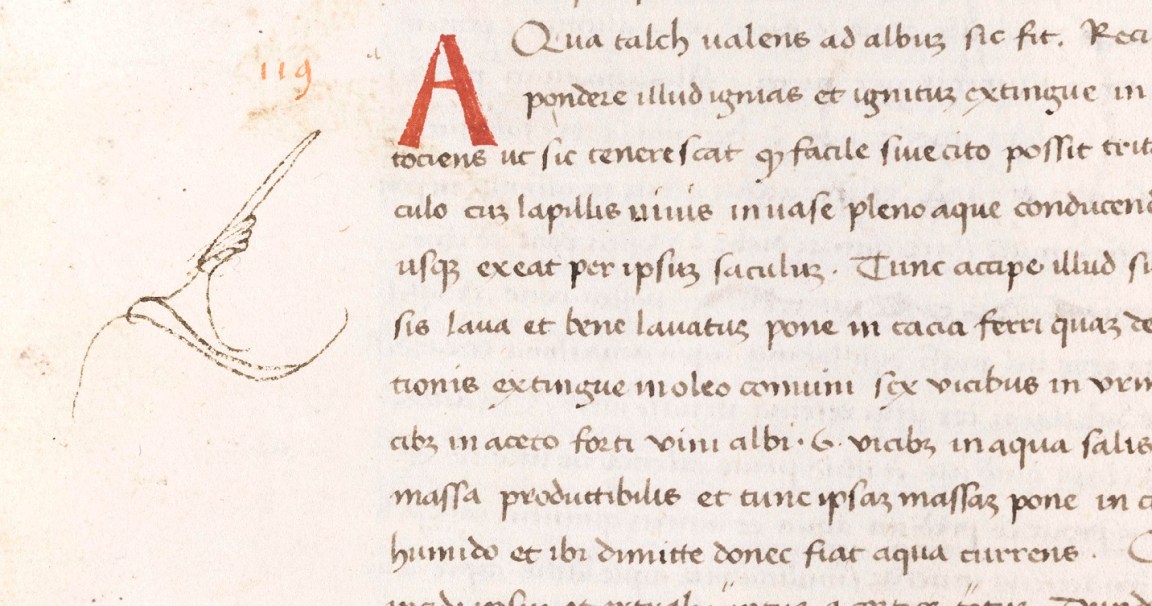 119
AQua talch ualens ad albuʒ sic fit. Reci
pondere illud ignias et ignituʒ extingue in
tociens ut sic tenerescat ꝙ facile siue cito possit trit
culo cuʒ lapillis uiuis in uase pleno aque conducend
usqʒ exeat per ipsuʒ saculuʒ. Tunc accipe illud su
sis laua et bene lauatuʒ pone in cacia ferri quaʒ de
tionis extingue in oleo comuni sex vicibus in vrin
cibʒ in aceto forti vini albi·6·vicibʒ in aqua salis
massa productibilis et tunc ipsaʒ massaʒ pone in c
humido et ibi dimitte donec fiat aqua currens